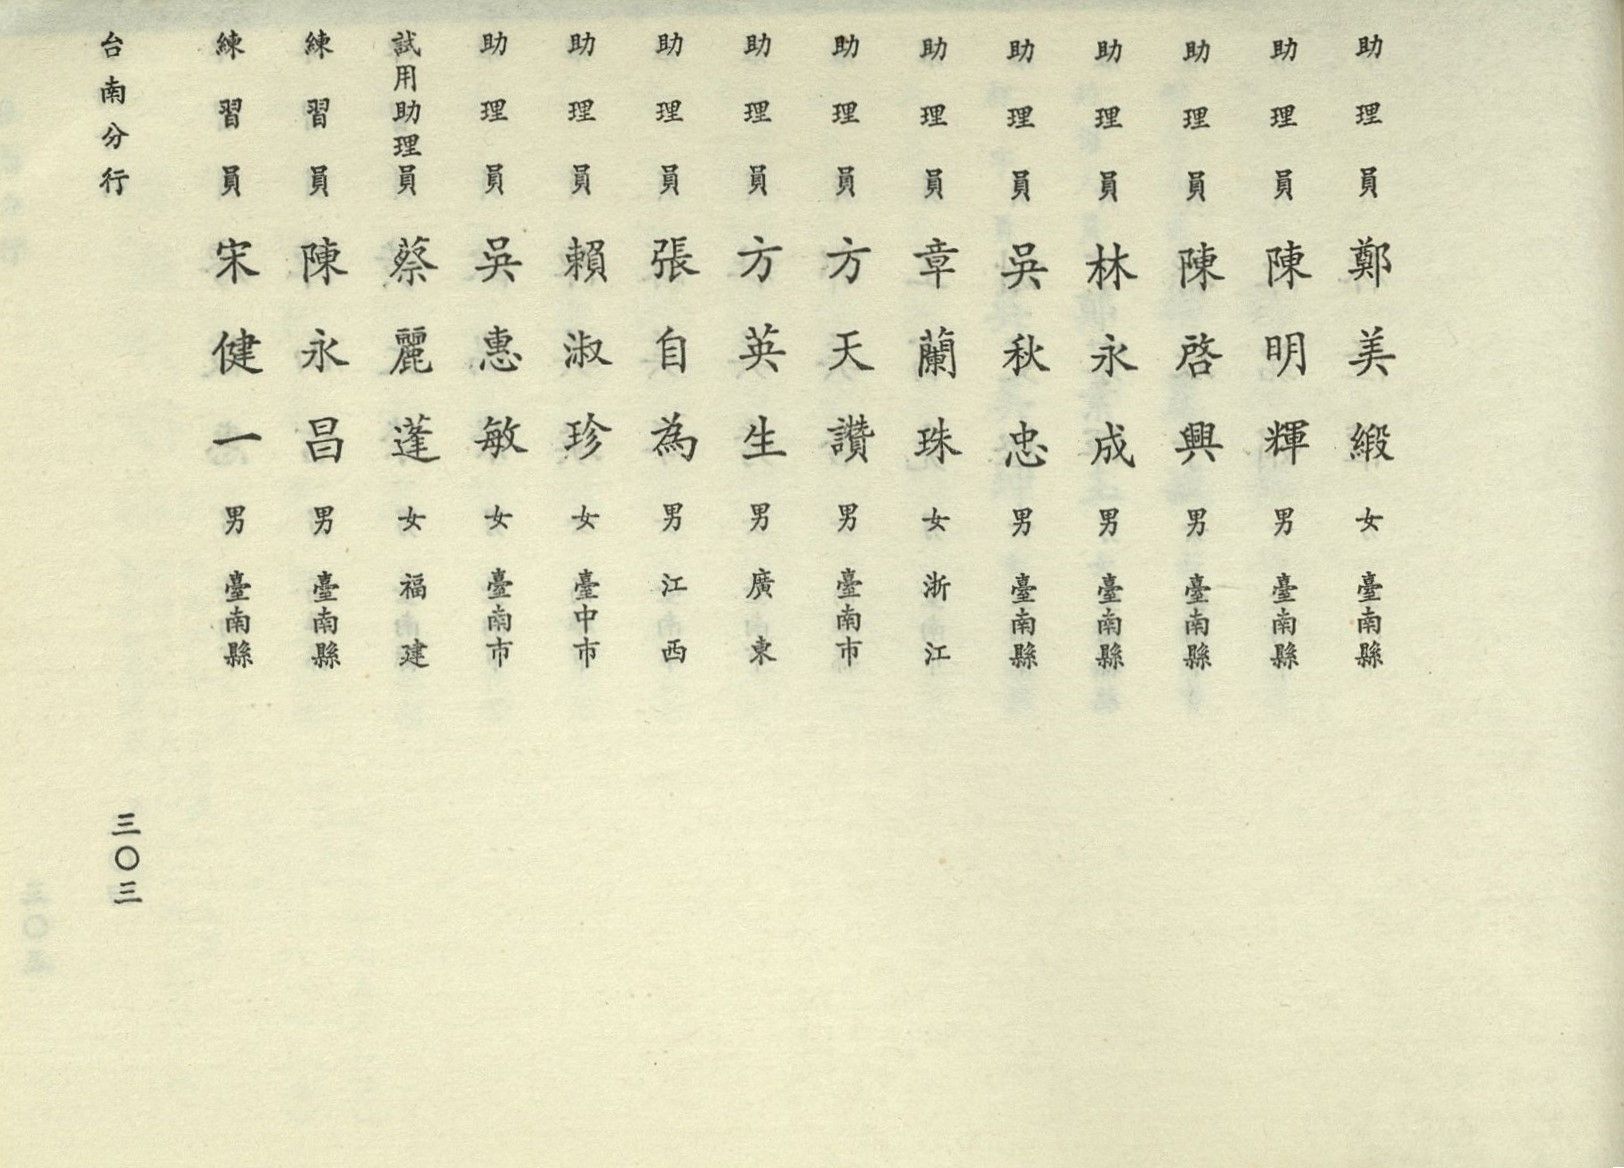 助理員 鄭美緞 女 臺南縣
助理員 陳明輝 男 臺南縣
助理員 陳啓興 男 臺南縣
助理員 林永成 男 臺南縣
助理員 吳秋忠 男 臺南縣
助理員 章蘭珠 女 浙江
助理員 方天讚 男 臺南市
助理員 方英生 男 廣東
助理員 張自為 男 江西
助理員 賴淑珍 女 臺中市
助理員 吳惠敏 女 臺南市
試用助理員 蔡麗蓬 女 福建
練習員 陳永昌 男 臺南縣
練習員 宋健一 男 臺南縣
台南分行 三〇三